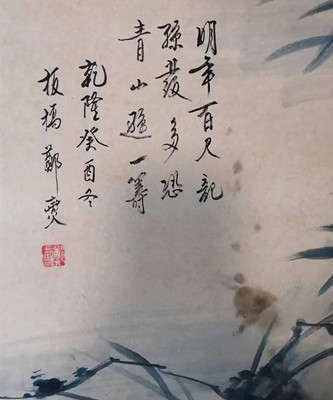 明年百尺龍
孫發多恐
青山遜一籌
乾隆癸酉冬
板橋鄭燮